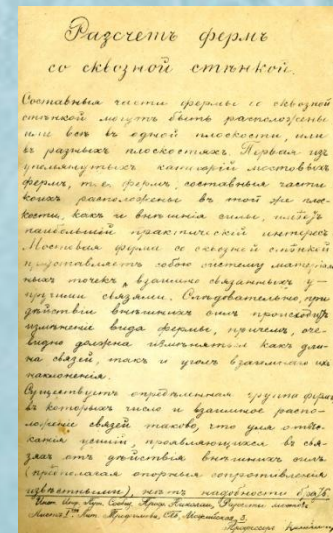 Разсчетъ фермъ
со сквозной стѣнкой.
Составныя части фермы со сквозной
стѣнкой могутъ быть расположены
или всѣ въ одной плоскости, или
въ разныхъ плоскостяхъ. Первая изъ
упомянутыхъ категорій мостовыхъ
фермъ, т.е. фермъ, составныя части
коихъ расположены въ той же плос-
кости, какъ и внѣшнія силы,
наибольшій практическій интересъ.
Мостовая ферма со сквозной стѣнкой
представляетъ собою систему матеріаль-
ныхъ точекъ, взаимно связанныхъ у-
пругими связями. Слѣдовательно, при
дѣйствіи внѣшнихъ силъ происходитъ
измѣненіе вида фермы, причемъ, оче-
видно должна измѣняться какъ дли-
на связей, такъ и уголъ взаимнаго ихъ
наклоненія.
Существуетъ опредѣленная группа фермъ
въ которыхъ число и взаимное распо-
ложеніе связей таково, что для отыс-
канія усилій, проявляющихся въ свя-
зяхъ отъ дѣйствія внѣшнихъ силъ
(предполагая опорныя сопротивленія
извѣстными), нѣтъ надобности
Инст. Инж. Пут. Сообщ. Проф. Николаи,
Лит. Трофимова, СПб. Можайская, 3.